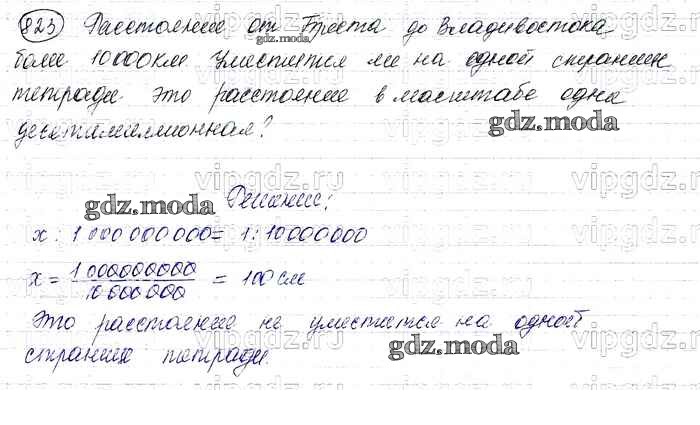 823 Расстояние от Бреста до Владивостока
более 10000км уместится ли на одной странице
тетради это расстояние в масштабе одна
десятимиллионная?
gdz.moda
gdz.moda
Решение:
gdz.moda
x : 1 000 000 000 = 1 : 10000000
x = 1 000000000 / 10 000 000 = 100 см
Это расстояние не уместится на одной
странице тетради.
gdz.moda
vipgdz.ru